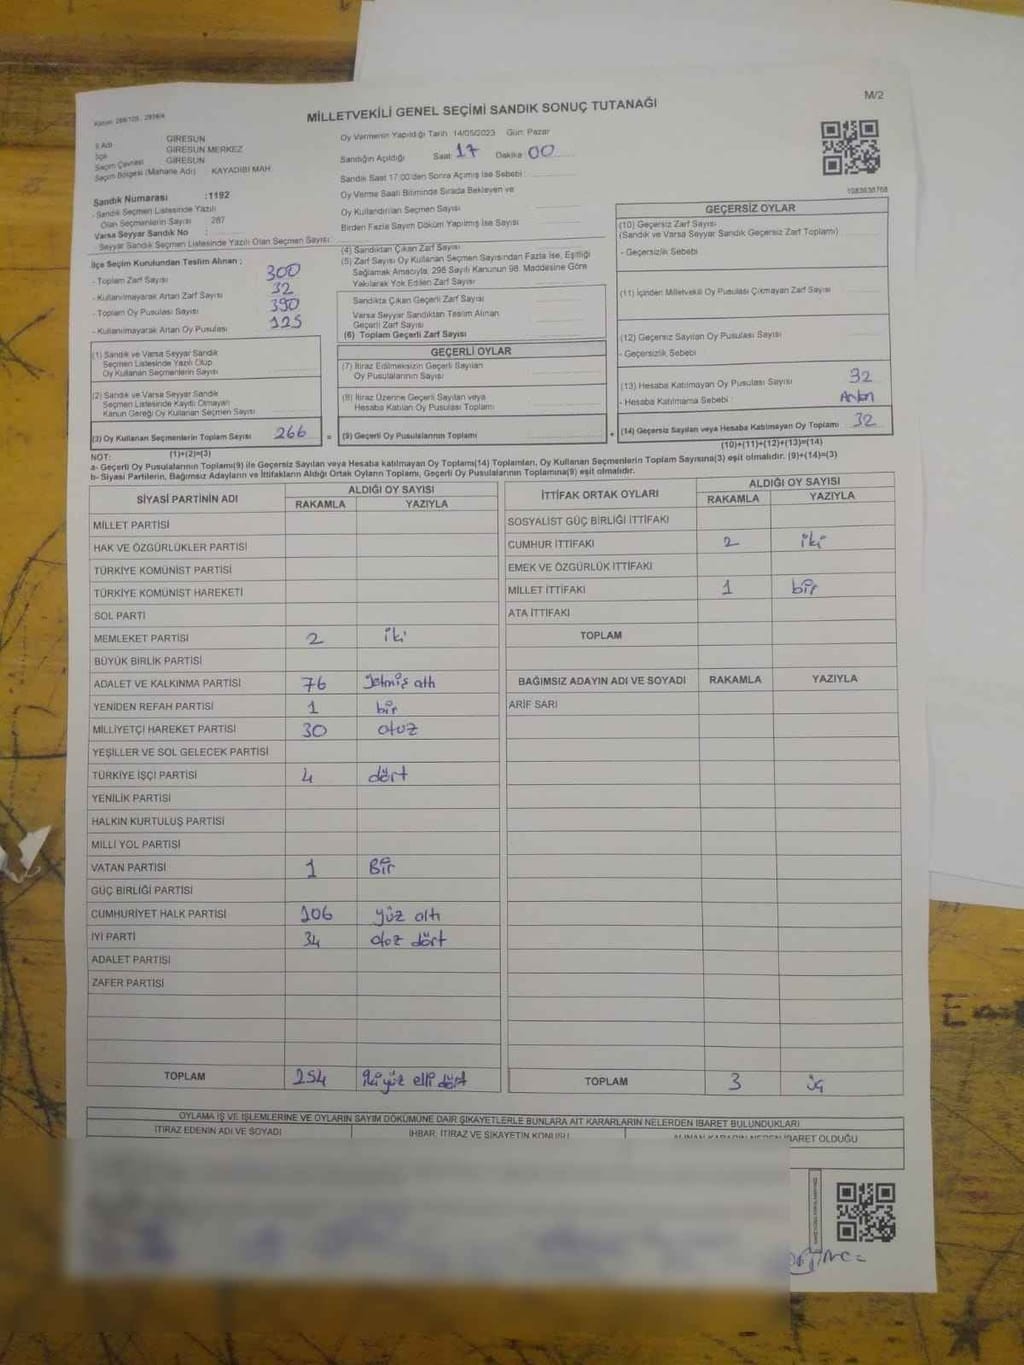 M/2
MİLLETVEKİLİ GENEL SEÇİMİ SANDIK SONUÇ TUTANAĞI
İl Adı GİRESUN
İlçe GİRESUN MERKEZ
Seçim Çevresi GİRESUN
Seçim Bölgesi (Mahalle Adı) : KAYADİBİ MAH.
Sandık Numarası :1192
- Sandık Seçmen Listesinde Yazılı
Olan Seçmenlerin Sayısı : 287
Varsa Seyyar Sandık No :
- Seyyar Sandık Seçmen Listesinde Yazılı Olan Seçmen Sayısı:
Oy Vermenin Yapıldığı Tarih 14/05/2023 Gün: Pazar
Sandığın Açıldığı Saat 17 Dakika 00
Sandık Saat 17:00'den Sonra Açılmış İse Sebebi
Oy Verme Saati Bitiminde Sırada Bekleyen ve
Oy Kullandırılan Seçmen Sayısı
Birden Fazla Sayım Döküm Yapılmış İse Sayısı
1083638768
İlçe Seçim Kurulundan Teslim Alınan ;
- Toplam Zarf Sayısı 300
- Kullanılmayarak Artan Zarf Sayısı 32
- Toplam Oy Pusulası Sayısı 390
- Kullanılmayarak Artan Oy Pusulası 125
(1) Sandık ve Varsa Seyyar Sandık
Seçmen Listesinde Yazılı Olup
Oy Kullanan Seçmenlerin Sayısı
(2) Sandık ve Varsa Seyyar Sandık
Seçmen Listesinde Kayıtlı Olmayan
Kanun Gereği Oy Kullanan Seçmen Sayısı
(3) Oy Kullanan Seçmenlerin Toplam Sayısı 266
(4) Sandıktan Çıkan Zarf Sayısı
(5) Zarf Sayısı Oy Kullanan Seçmen Sayısından Fazla İse, Eşitliği
Sağlamak Amacıyla, 298 Sayılı Kanunun 98. Maddesine Göre
Yakılarak Yok Edilen Zarf Sayısı
Sandıkta Çıkan Geçerli Zarf Sayısı
Varsa Seyyar Sandıktan Teslim Alınan
Geçerli Zarf Sayısı
(6) Toplam Geçerli Zarf Sayısı
GEÇERLİ OYLAR
(7) İtiraz Edilmeksizin Geçerli Sayılan
Oy Pusulalarının Sayısı
(8) İtiraz Üzerine Geçerli Sayılan veya
Hesaba Katılan Oy Pusulası Toplamı
= (9) Geçerli Oy Pusulalarının Toplamı
GEÇERSİZ OYLAR
(10) Geçersiz Zarf Sayısı
(Sandık ve Varsa Seyyar Sandık Geçersiz Zarf Toplamı)
- Geçersizlik Sebebi
(11) İçinden Milletvekili Oy Pusulası Çıkmayan Zarf Sayısı
(12) Geçersiz Sayılan Oy Pusulası Sayısı
- Geçersizlik Sebebi
(13) Hesaba Katılmayan Oy Pusulası Sayısı 32
- Hesaba Katılmama Sebebi Artan
+ (14) Geçersiz Sayılan veya Hesaba Katılmayan Oy Toplamı 32
(1)+(2)=(3)
(10)+(11)+(12)+(13)=(14)
NOT:
a- Geçerli Oy Pusulalarının Toplamı(9) ile Geçersiz Sayılan veya Hesaba katılmayan Oy Toplamı(14) Toplamları, Oy Kullanan Seçmenlerin Toplam Sayısına(3) eşit olmalıdır. (9)+(14)=(3)
b- Siyasi Partilerin, Bağımsız Adayların ve İttifakların Aldığı Ortak Oyların Toplamı, Geçerli Oy Pusulalarının Toplamına(9) eşit olmalıdır.
SİYASİ PARTİNİN ADI ALDIĞI OY SAYISI
RAKAMLA YAZIYLA
MİLLET PARTİSİ
HAK VE ÖZGÜRLÜKLER PARTİSİ
TÜRKİYE KOMÜNİST PARTİSİ
TÜRKİYE KOMÜNİST HAREKETİ
SOL PARTİ
MEMLEKET PARTİSİ 2 iki
BÜYÜK BİRLİK PARTİSİ
ADALET VE KALKINMA PARTİSİ 76 yetmiş altı
YENİDEN REFAH PARTİSİ 1 bir
MİLLİYETÇİ HAREKET PARTİSİ 30 otuz
YEŞİLLER VE SOL GELECEK PARTİSİ
TÜRKİYE İŞÇİ PARTİSİ 4 dört
YENİLİK PARTİSİ
HALKIN KURTULUŞ PARTİSİ
MİLLİ YOL PARTİSİ
VATAN PARTİSİ 1 Bir
GÜÇ BİRLİĞİ PARTİSİ
CUMHURİYET HALK PARTİSİ 106 yüz altı
İYİ PARTİ 34 otoz dört
ADALET PARTİSİ
ZAFER PARTİSİ
TOPLAM 254 iki yüz elli dört
İTTİFAK ORTAK OYLARI ALDIĞI OY SAYISI
RAKAMLA YAZIYLA
SOSYALİST GÜÇ BİRLİĞİ İTTİFAKI
CUMHUR İTTİFAKI 2 iki
EMEK VE ÖZGÜRLÜK İTTİFAKI
MİLLET İTTİFAKI 1 bir
ATA İTTİFAKI
TOPLAM
BAĞIMSIZ ADAYIN ADI VE SOYADI RAKAMLA YAZIYLA
ARİF SARI
TOPLAM 3 üç
OYLAMA İŞ VE İŞLEMLERİNE VE OYLARIN SAYIM DÖKÜMÜNE DAİR ŞİKAYETLERLE BUNLARA AİT KARARLARIN NELERDEN İBARET BULUNDUKLARI
İTİRAZ EDENİN ADI VE SOYADI İHBAR, İTİRAZ VE ŞİKAYETİN KONUSU ALINAN KARARIN NEDEN İBARET OLDUĞU